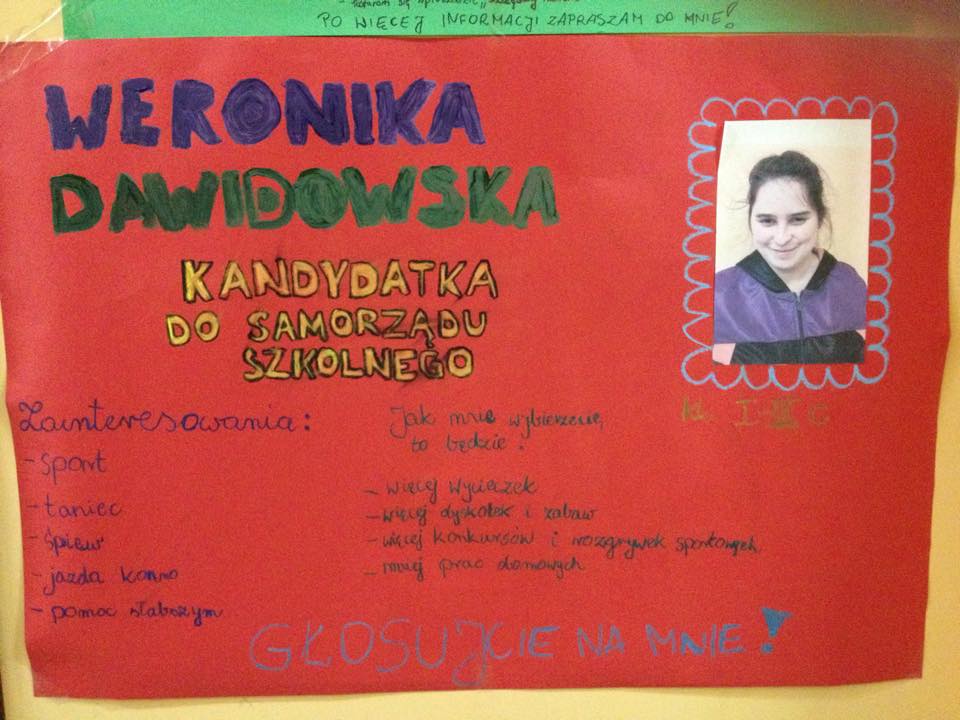 PO WIĘCEJ INFORMACJI ZAPRASZAM DO MNIE!
WERONIKA
DAWIDOWSKA
KANDYDATKA
DO SAMORZĄDU
SZKOLNEGO
kl. I-III c
Zainteresowania:
- sport
- taniec
- śpiew
- jazda konno
- pomoc słabszym
Jak mnie wybierzecie,
to będzie:
- więcej wycieczek
- więcej dyskotek i zabaw
- więcej konkursów i rozgrywek sportowych
- mniej prac domowych
GŁOSUJCIE NA MNIE!